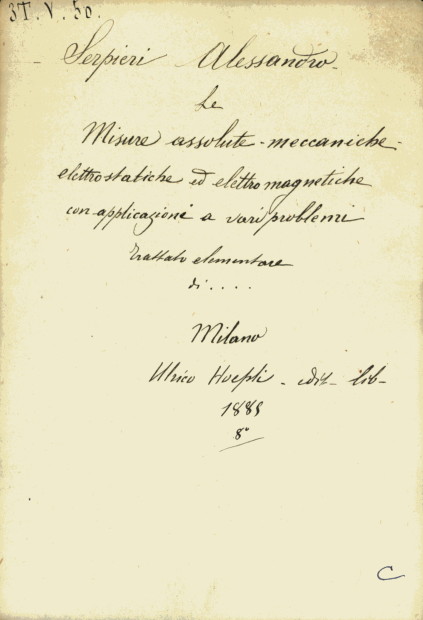 3T. V. 50.
Serpieri Alessandro.
Le
Misure assolute - meccaniche -
elettrostatiche ed elettromagnetiche
con applicazioni a vari problemi
Trattato elementare
di....
Milano
Ulrico Hoepli - edit - lib -
1885
8°
C